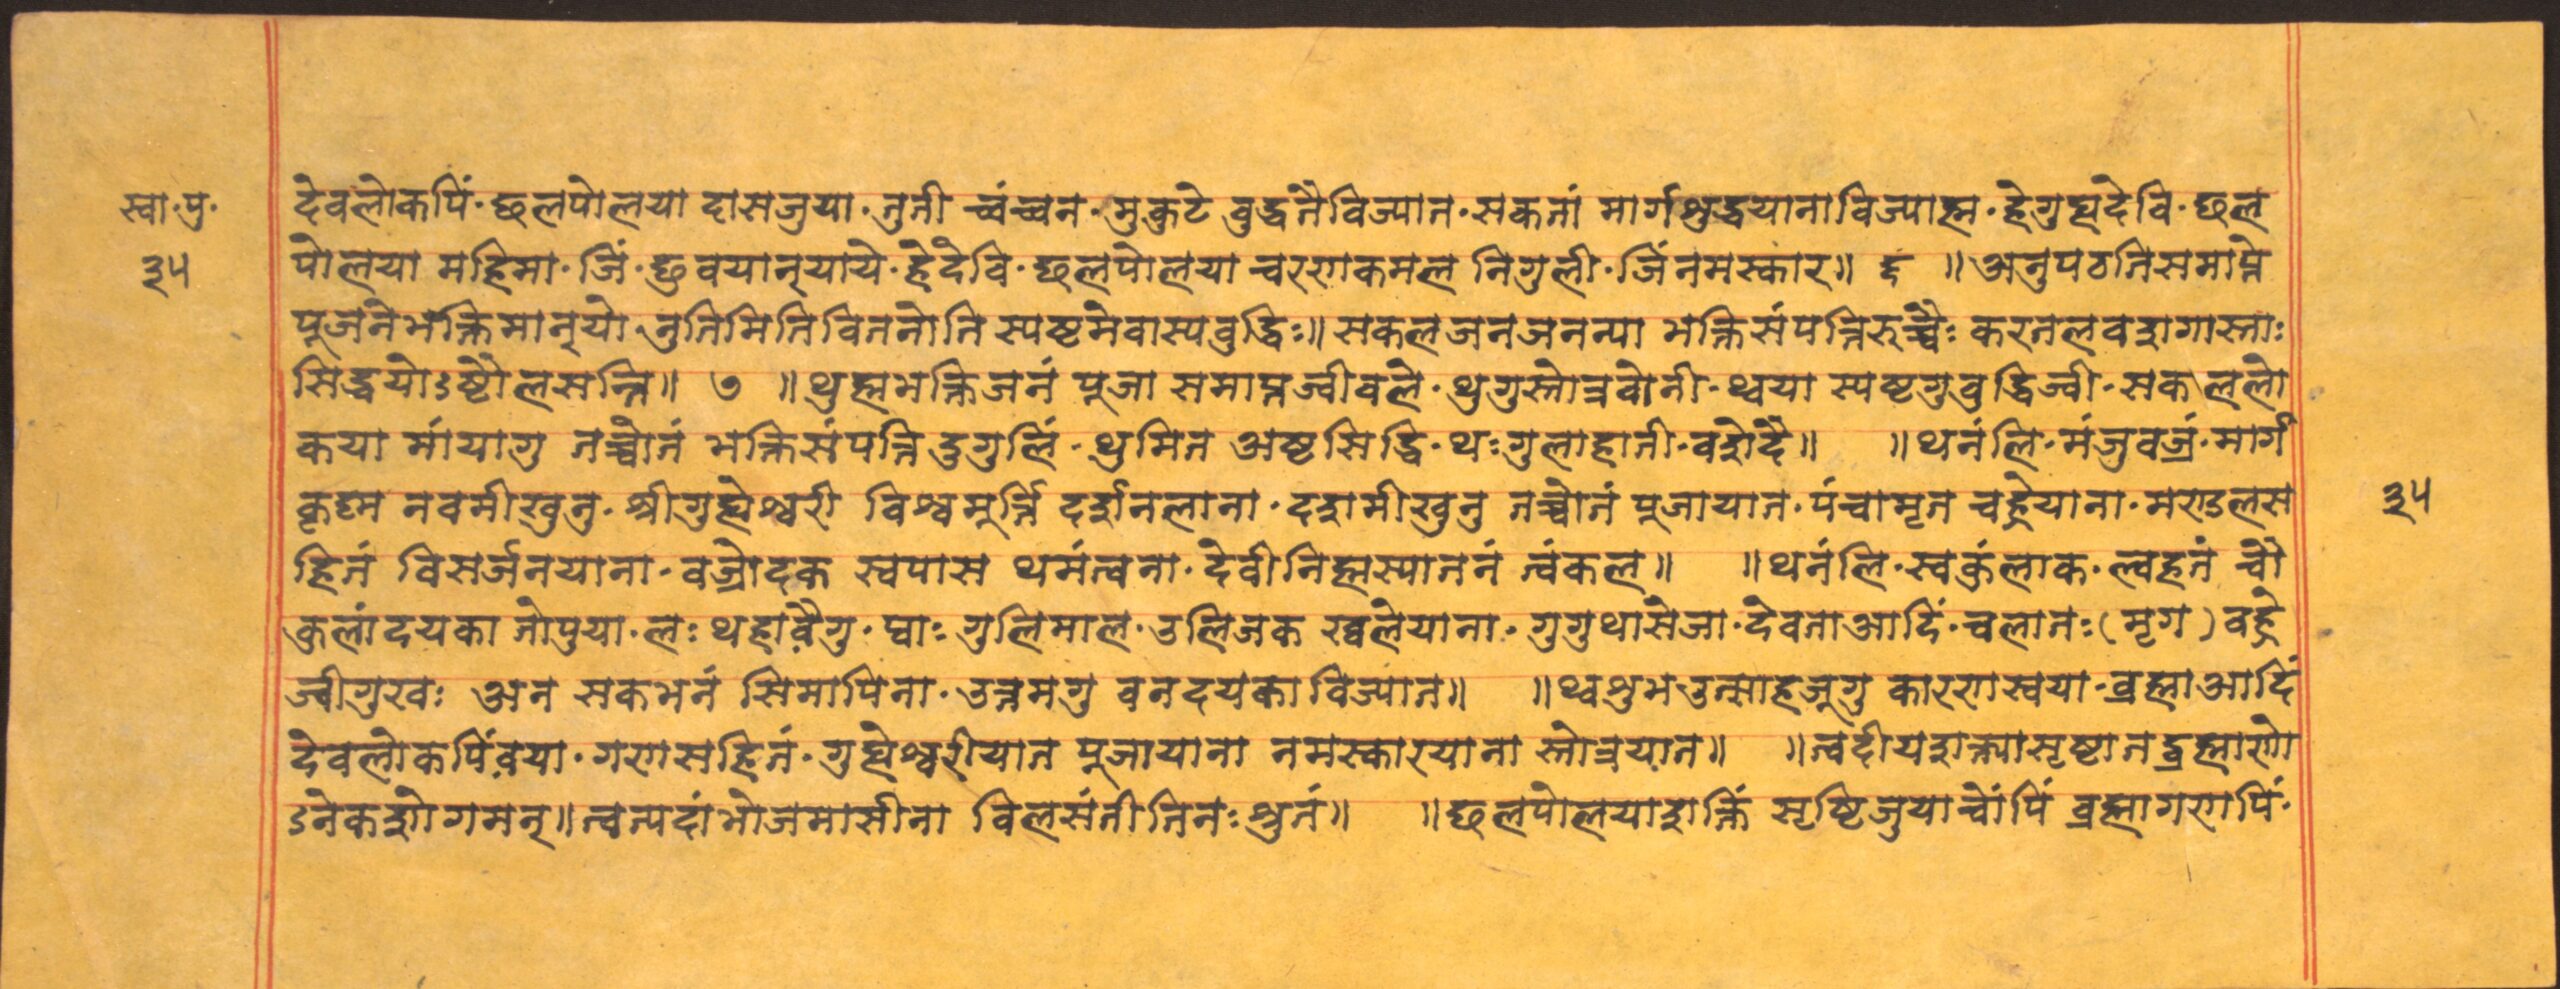 स्वा·पु·
३५
देवलोकपिं·छलपोलया दासजुया·तुती च्वंच्वन·मुकुटे वुद्धनैविज्यात·सकतां मार्गशुद्धयानाविज्याह्म·हेगुह्यदेवि·छल
पोलया महिमा·जिं·छुवयान्‌याये·हेदेवि·छलपोलया चरणकमल निगुली·जिंनमस्कार॥ ६ ॥अनुपठतिसमाप्ते
पूजनेभक्तिमान्‌यो नुतिमितिवितनोति स्पष्टमेवास्यवुद्धिः॥सकलजनजनन्या भक्तिसंपत्तिरुच्चैः करतलवशगास्ताः
सिद्धयोऽष्टौलसन्ति॥ ७ ॥थुह्मभक्तिजनं पूजा समाप्तज्वीवले·थुगुस्तोत्रवोनी·थ्वया स्पष्टगुवुद्धिज्वी·सकललो
कया मांयागु तच्वोतं भक्तिसंपत्ति दुगुलिं·थुमित अष्टसिद्धि·थःगुलाहाती·वशोदै॥ ॥थनंलि·मंजुवज्रं·मार्ग
कृष्ण नवमीखुनु·श्रीगुह्येश्वरी विश्वमूर्त्ति दर्शनलाना·दशमीखुनु तच्वोतं पूजायात·पंचामृत चह्रेयाना·मण्डलस
हितं विसर्जनयाना·वज्रोदक स्वपास थमंत्वना·देवीनिह्मस्यातनं त्वंकल॥ ॥थनंलि·स्वकुंलाक·ल्वहनं चौ
कुलांदयका गोपुया·लः थहावैगु·प्वाः गुलिमाल·उलिजक रव्वलेयाना·गुगुथासेजा·देवताआदिं·चलातः(मृग)वह्रे
ज्वीगुखः अन सकभनं सिमापिना·उत्तमगु वनदयकाविज्यात॥ ॥थ्वशुभउत्साहजूगु कारणस्वया·व्रह्माआदिं
देवलोकपिंवया·गणसहितं·गुह्येश्वरीयात पूजायाना नमस्कारयाना स्तोत्रयात॥ ॥त्वदीयशक्त्यासृष्टातद्व्रह्माणो
ऽनेकशोगमन्॥त्वत्पदांभोजमासीना विलसंतीतिनः श्रुतं॥ ॥छलपोलयाशक्तिं सृष्टिजुयाच्वोंपिं व्रह्मागणपिं·
३५